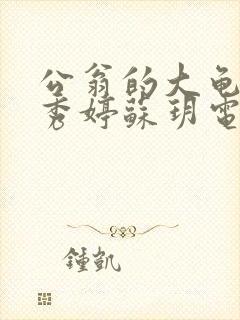 公翁的大龟
秀婷蘇玥電
鍾凱